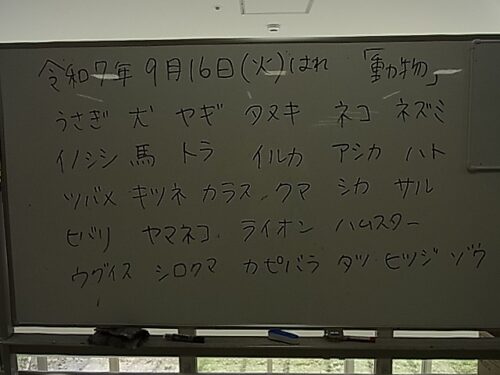 令和7年 9月16日(火)はれ 「動物」
うさぎ 犬 ヤギ タヌキ ネコ ネズミ
イノシシ 馬 トラ イルカ アシカ ハト
ツバメ キツネ カラス クマ シカ サル
ヒバリ ヤマネコ ライオン ハムスター
ウグイス シロクマ カピバラ タツ ヒツジ ゾウ